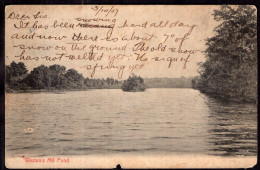 3/10/07
Dear Sis. snowing
It has been hard all day
and now there is about 7" of
snow on the ground. The old snow
has not melted yet. No sign of
spring yet
Mill Pond